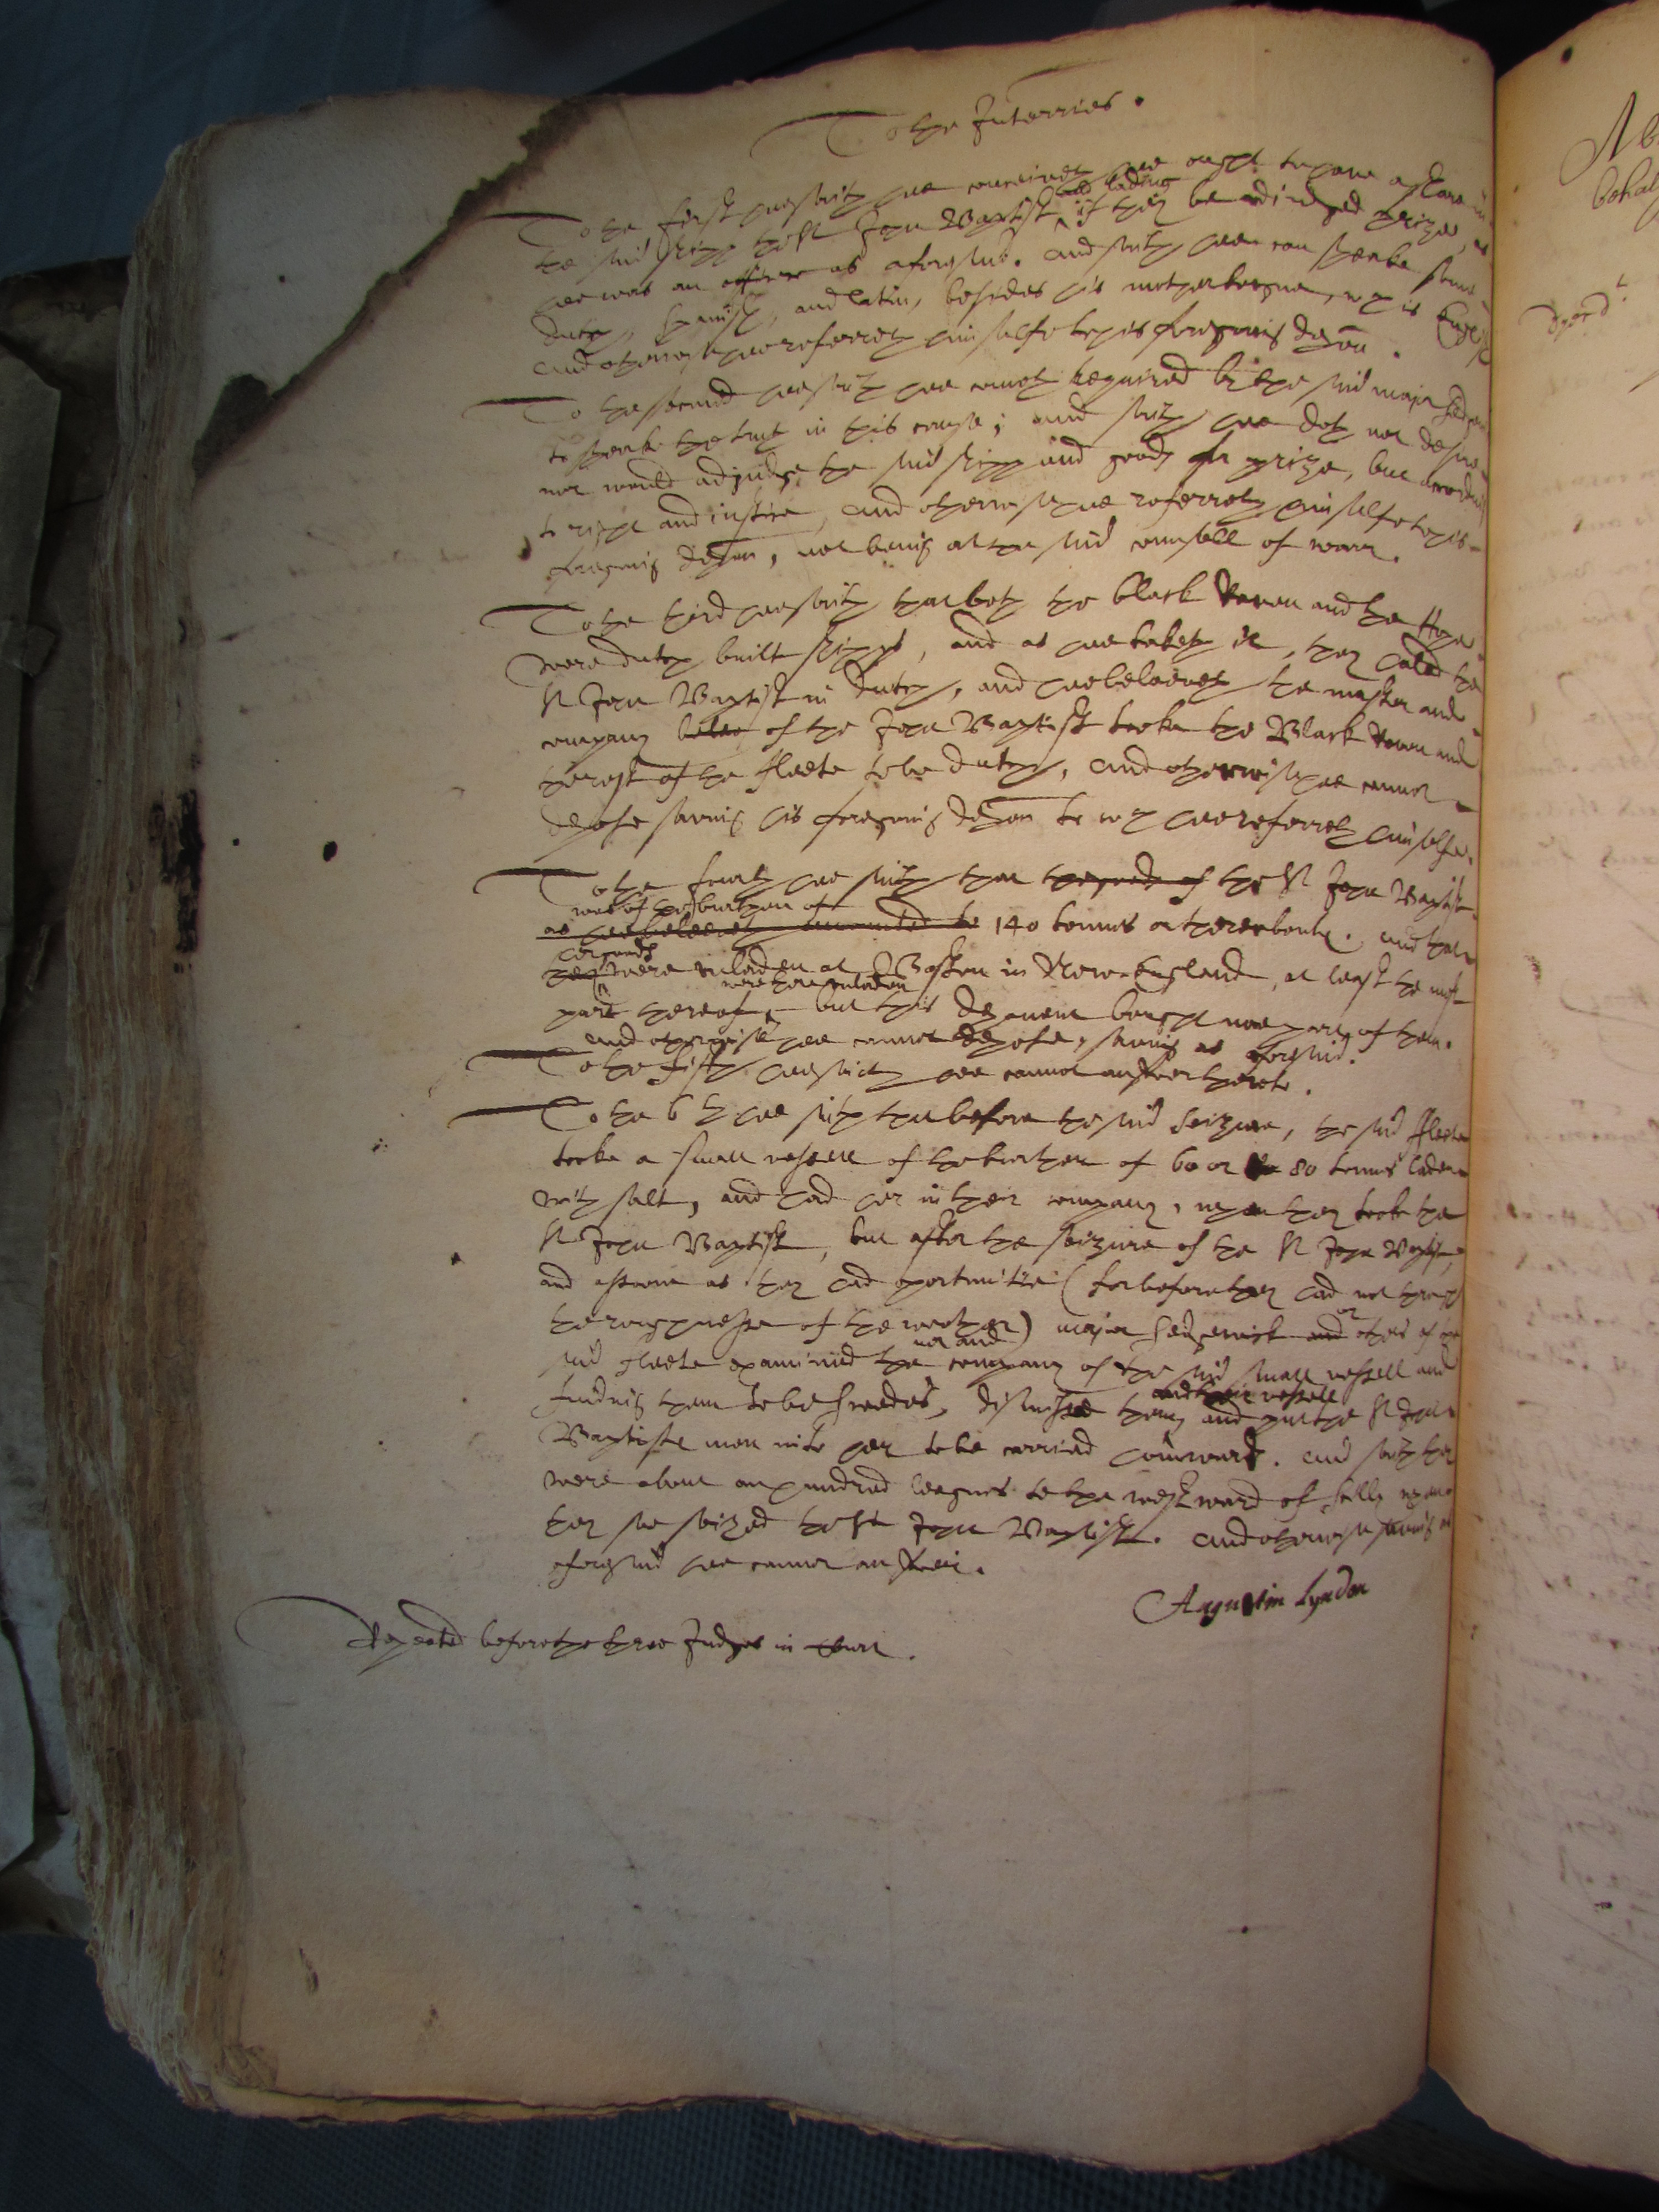 To the Interries.
To the first hee saith hee conceiveth hee ought to have a share in
the said shipp the St John Baptist and lading if they be adiudged prize, as
hee was an officer as aforesaid. And saith hee can speake some
dutch, spanish, and latin, besides his mother tongue, wch is English
And otherwise hee referreth himselfe to his foregoing depon.
To the second hee saith hee cometh required by the said major Sedgwick
to speake the truth in this cause; and saith hee doth not desire
nor would adjudge the said shipp and goods for prize, but according
to right and justice, and otherwise hee referreth himselfe to his
foregoing depon, not being at the said counsell of warr.
To the third hee saith that both the black Raven and the Hope
were dutch built shipps, and as hee taketh it, they haled the
St John Baptist in dutch, and hee beleeveth the master and
company of the John Baptist tooke the Black Raven and
the rest of the fleete to be dutch, And otherwise hee cannot
depose saving his foregoing depon to wch hee referreth himselfe.
To the fourth hee saith that the goods of the St John Baptist
was of the burthen of
as hee beleeveth amounted to 140 tonnes or thereabouts. and that
her goods
they were unladen at Boston in New-England, at least the most
were there unladen
part thereof, but this deponent bought noe part of them.
and otherwise hee cannot depose, saving as aforesaid.
To the fifth hee saith hee cannot answer thereto.
To the 6th hee saith that before the said seizure, the said fleete
tooke a small vessell of the burthen of 60 or 80 tonnes laden
with salt, and had her in their company, when they tooke the
St John Baptist, but after the seizure of the St John Baptist,
and assoone as they had oportunitie (for before they had not through
the roughnesse of the weather) major Sedgwick and or others of the
said fleete examined the company of the said small vessell and
finding them to be Sweedes, dismissed them and their vessell and put the St John
Baptists men into her to be carried homeward. And saith they
were about an hundred leagues to the westward of Silly when
they soe seized the St John Baptist. And otherwise saving as
aforesaid hee cannot answer.
Augustin Lyndon
Repeated before the three Judges in Court.
A
behal